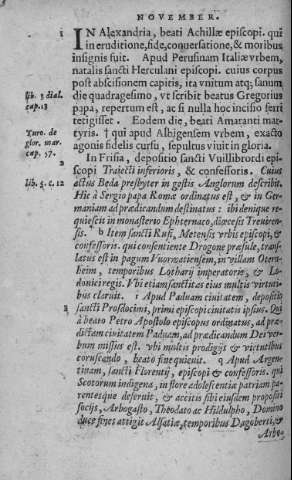 NOVEMBER.
1 IN Alexandria, beati Achillæ episcopi. qui
in eruditione, fide, conuersatione, & moribus
insignis fuit. Apud Perusinam Italiæ vrbem,
natalis sancti Herculani episcopi. cuius corpus
lib. 3 dial. post abscisionem capitis, ita vnitum atq; sanum,
cap.13 die quadragesimo, vt scribit beatus Gregorius
papa, repertum est, ac si nulla hoc incisio ferri
tetigisset. Eodem die, beati Amaranti mar-
Turo. de tyris. † qui apud Albigensem vrbem, exacto
glor. mar. agonis fidelis cursu, sepultus viuit in gloria.
cap. 57. In Frisia, depositio sancti Vuillibrordi epi-
scopi Traiecti inferioris, & confessoris. Cuius
lib. 5. c. 12 actus Beda presbyter in gestis Anglorum describit.
Hic à Sergio papa Romæ ordinatus est, & in Ger-
maniam ad prædicandum destinatus: ibi denique re-
quiescit in monasterio Epternaco, diœcesis Treuiren-
sis. b Item sancti Rufi, Metensis vrbis episcopi, &
confessoris. qui consentiente Drogone præsule, trans-
latus est in pagum Vuormatiensem, in villam Oteren-
heim, temporibus Lotharij imperatoris, & Lo-
donici regis. Vbi etiam sanctitas eius multis virtuti-
bus claruit. i Apud Paduam ciuitatem, depositio
sancti Prosdocimi, primi episcopi ciuitatis ipsius. Qui
à beato Petro Apostolo episcopus ordinatus, ad præ-
dictam ciuitatem Paduam, ad prædicandum Dei ver-
bum missus est. vbi multis prodigijs & virtutibus
coruscando, beato fine quieuit. q Apud Argen-
tinam, sancti Florentij, episcopi & confessoris. qui
Scotorum indigena, in flore adolescentiæ patriam pa-
rentesque deseruit, & accitis sibi eiusdem propositi
socijs, Arbogasto, Theodato ac Hildulpho, Domino
duce fines attigit Alsatiæ, temporibus Dagoberti, &
Arbo-